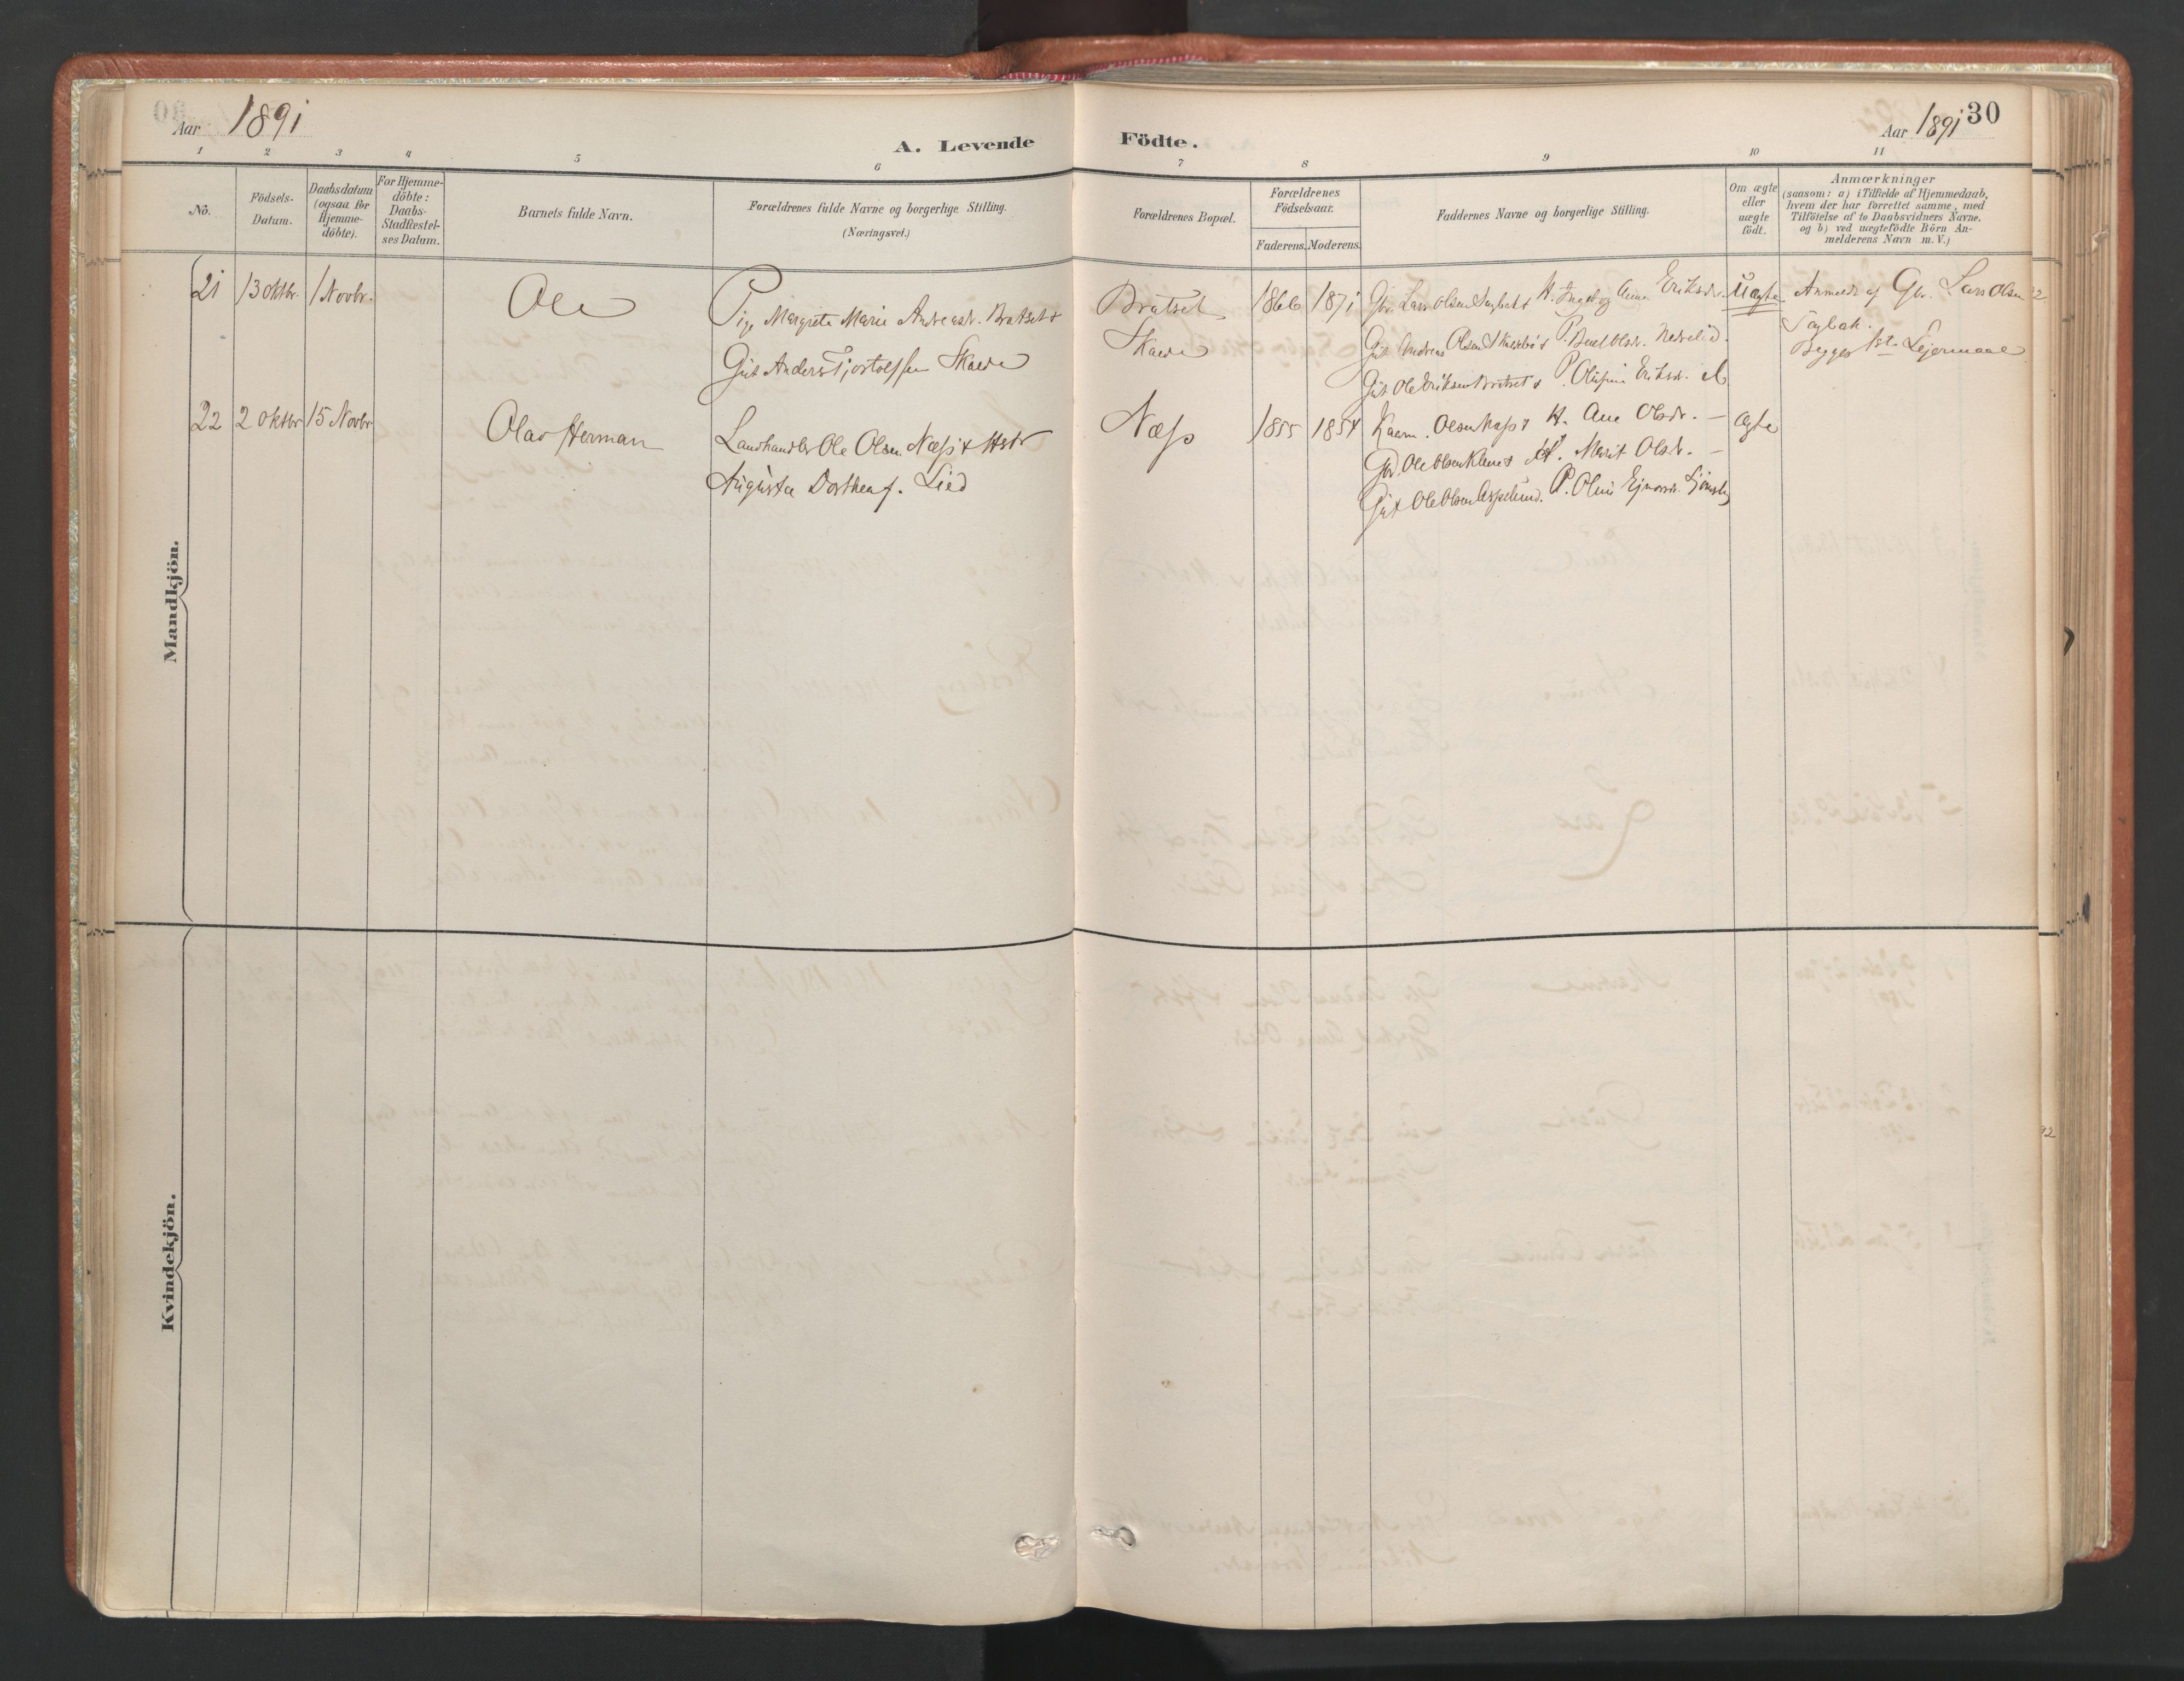 Aar 1891
A. Levende Födte.
Aar 1891 30
1 2 3 4 5 6 7 8 9 10 11
No.
Födsels-
Datum.
Daabsdatum
(ogsaa for
Hjemme-
döbte).
For Hjemme-
döbte:
Daabs-
Stadfæstel-
ses Datum.
Barnets fulde Navn.
Forældrenes fulde Navne og borgerlige Stilling.
(Næringsvei.)
Forældrenes Bopæl.
Forældrenes
Födselsaar.
Faderens. Moderens.
Faddernes Navne og borgerlige Stilling.
Om ægte
eller
uægte
födt.
Anmærkninger
(saasom: a) i Tilfælde af Hjemmedaab,
hvem der har forrettet samme, med
Tilföielse af to Daabsvidners Navne.
og b) ved uægtefödte Börn An-
melderens Navn m. V.)
Mandkjön.
21 13 oktbr. 1 Novbr.
Ole
Pige Margrete Marie Andreasdr. Bratset &
Gut Anders Skare
Bratset
Skare
1866 1871
Gbr. Lars Olsen & H. Ingeborg Anna Eriksdr.
Gut Andreas Olsen & P. Olsdr. Nedrelid.
Gut Ole Eriksen Bratset & P. Eriksdr.
Uægte
Anmeldt af Gbr. Lars Olsen
Begges 1ste Lejermaal
22 2 oktbr 15 Novbr
Olav Herman
Landhandler Ole Olsen Næss & Hstr
Augusta Dorthea f. Lied
Næss
1855 1854
Olsen Næss & H. Ane Olsdr. —
Gbr Ole Olsen & H. Marit Olsdr. —
Gut Ole Olsen Aspelund. P.
ægte
Kvindekjön.